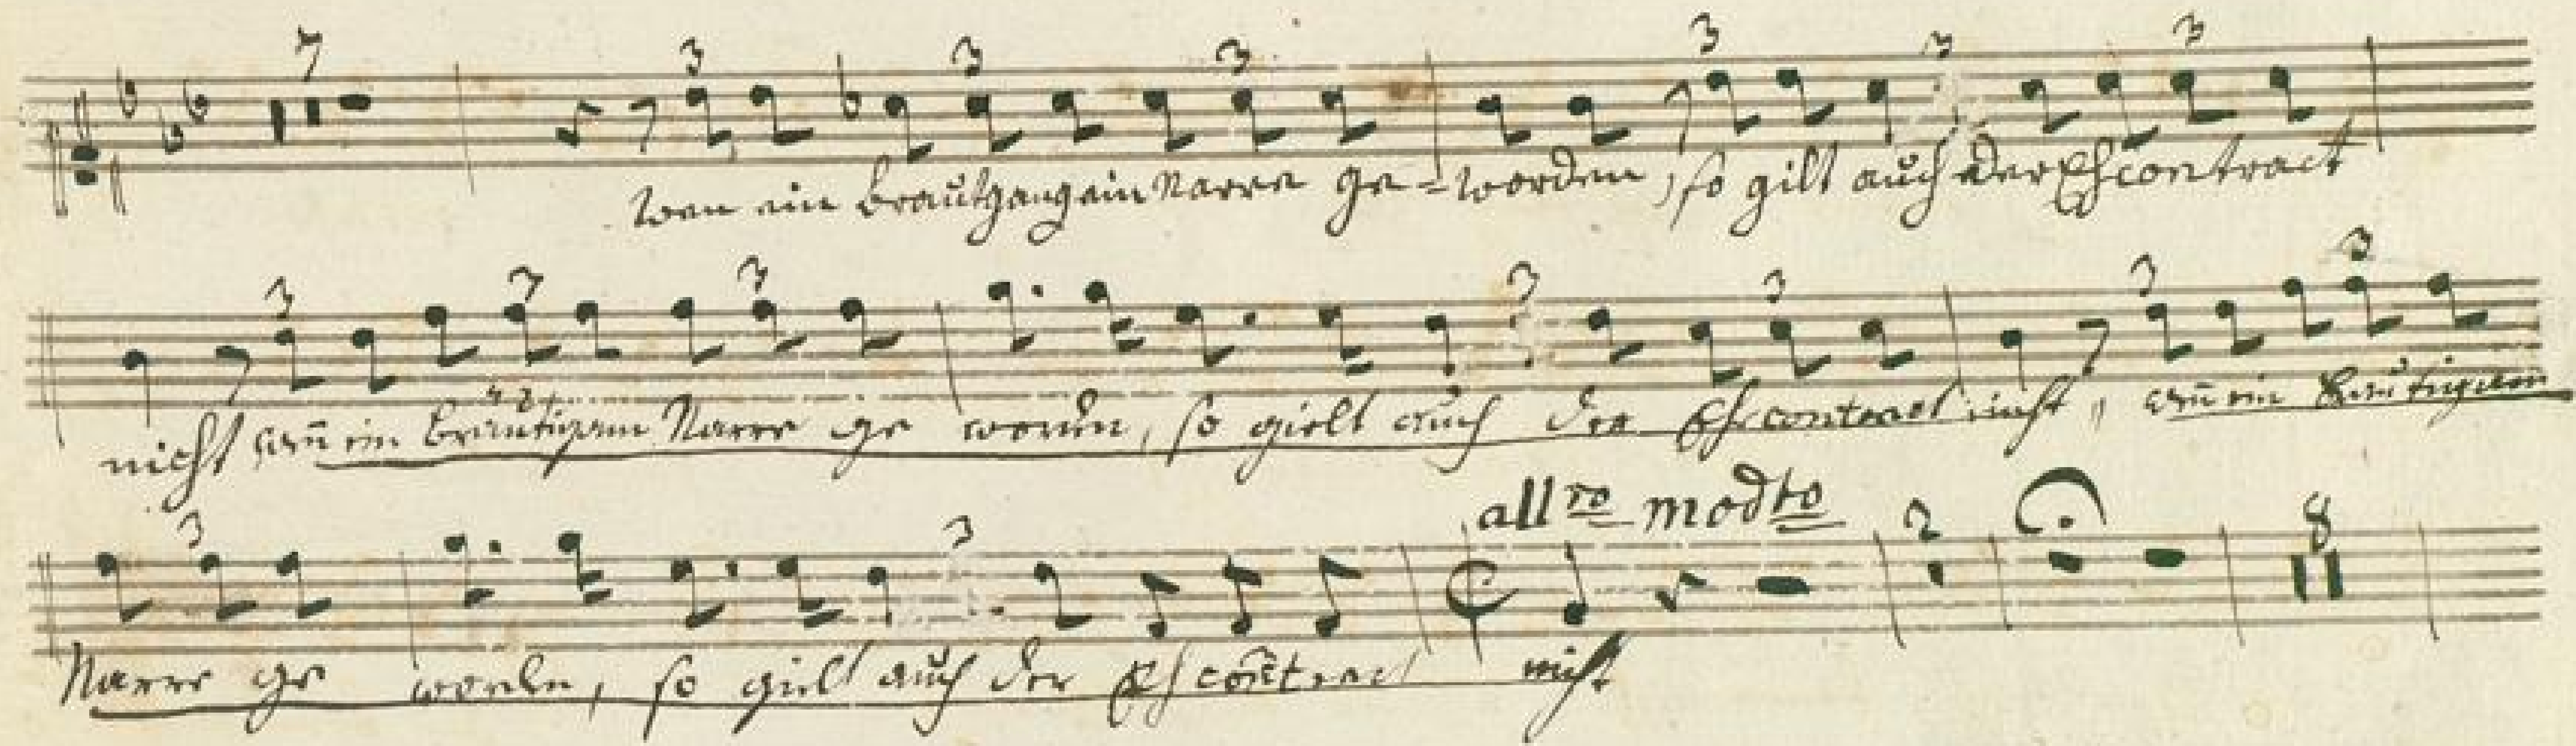 7 3 3 3 3 3 3
Wen ein Brautgang ein Narre ge=worden, so gilt auch der Ehcontract
3 3 3 3 3 3 3
nicht wen̄ ein Bräutigam Narre ge worden, so gielt auch der Ehcontract nicht, wen̄ ein Bräutigam
all<sup>ro</sup> mod<sup>to</sup>
3 3 2 8
Narre ge worden, so gielt auch der Ehcontract nicht